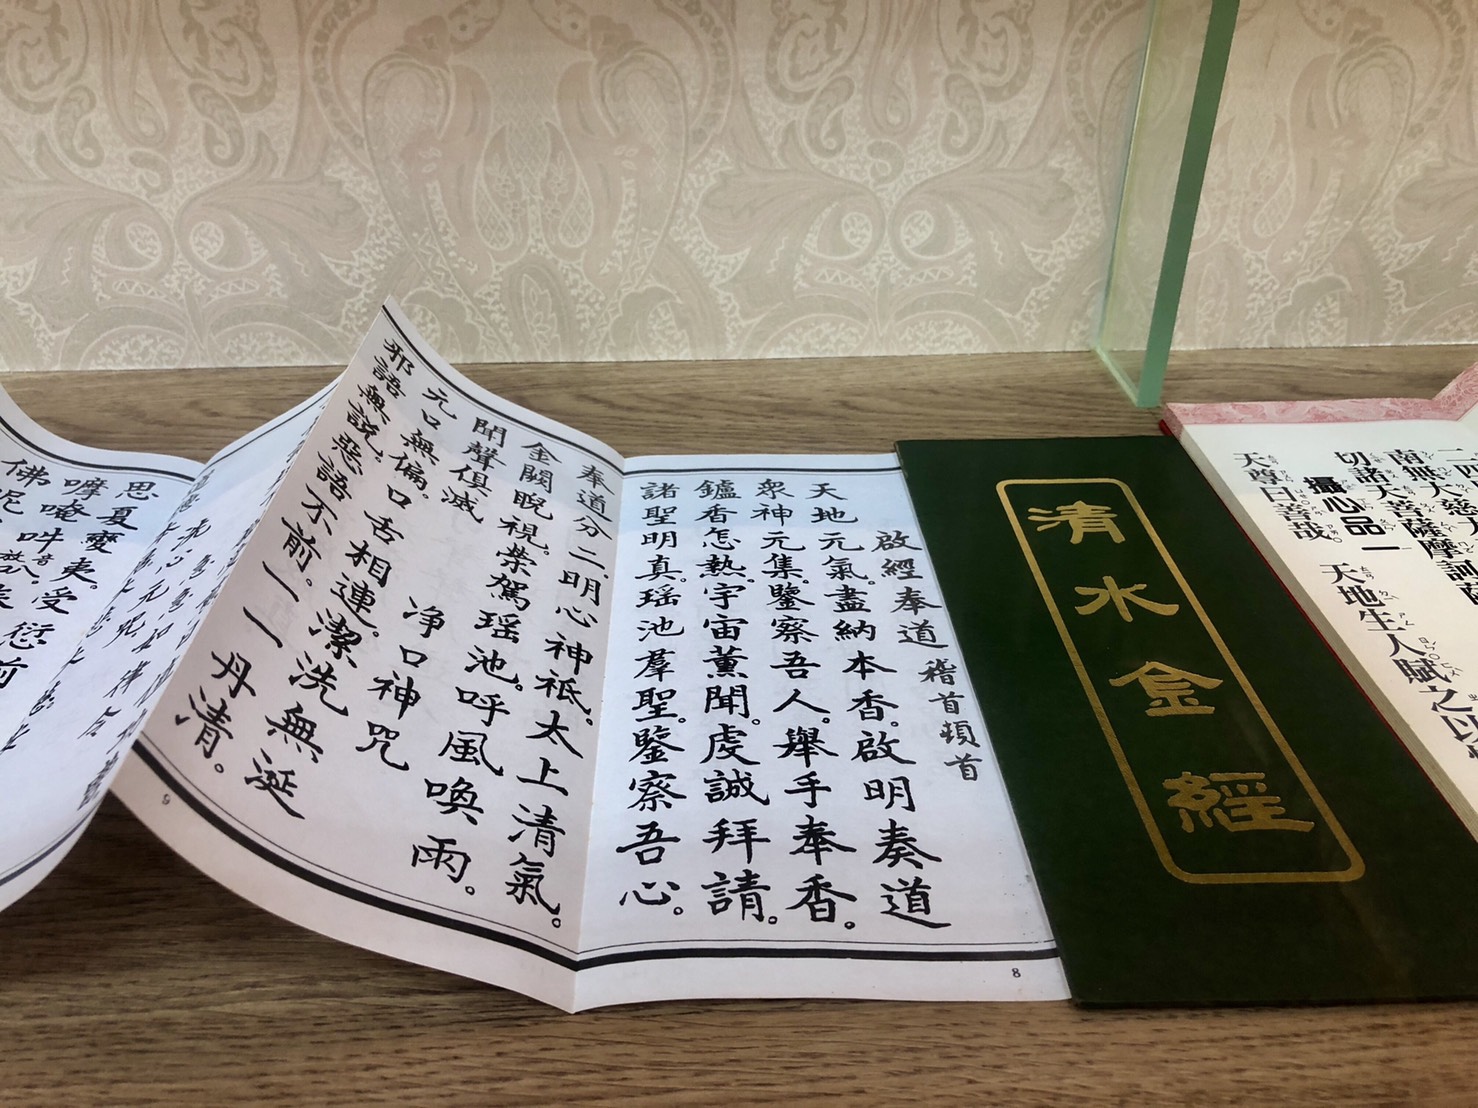 二四
南無大慈大
切諸大菩薩摩訶薩
攝心品一
天尊曰善哉。
天地生人賦之以
清水金經
啟經奉道 稽首頓首
天地元氣。盡納本香。啟明奏道
衆神元集。鑒察吾人。舉手奉香。
鑪香怎熱。宇宙薰聞。虔誠拜請。
諸聖明真。瑶池羣聖。鑒察吾心。
8
奉道分二。明心神祇。太上清氣。
金闕睨視。榮駕瑶池。呼風喚雨。
聞聲俱滅
净口神咒
元口無偏。口舌相連。潔洗無涎
邪語無説。惡語不前。一一丹清。
9
思夏變夷。受衍前
嚤唵吽音
佛呢